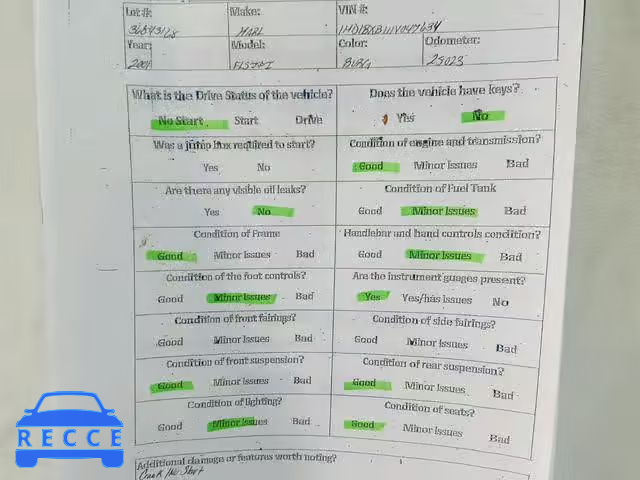 Lot#: Make: VIN #:
36843128 HARL 1HD1BXB111Y047634
Year: Model: Color: Odometer:
2001 FLSTFI BURG 25023
What is the Drive Status of the vehicle? Does the vehicle have keys?
No Start Start Drive Yes No
Was a jump box required to start? Condition of engine and transmission?
Yes No Good Minor Issues Bad
Are there any visible oil leaks? Condition of Fuel Tank
Yes No Good Minor Issues Bad
Condition of Frame Handlebar and hand controls condition?
Good Minor Issues Bad Good Minor Issues Bad
Condition of the foot controls? Are the instrument guages present?
Good Minor Issues Bad Yes Yes/has Issues No
Condition of front fairings? Condition of side fairings?
Good Minor Issues Bad Good Minor Issues Bad
Condition of front suspension? Condition of rear suspension?
Good Minor Issues Bad Good Minor Issues Bad
Condition of lighting? Condition of seats?
Good Minor Issues Bad Good Minor Issues Bad
Additional damage or features worth noting?
Crank No Start
RECCE